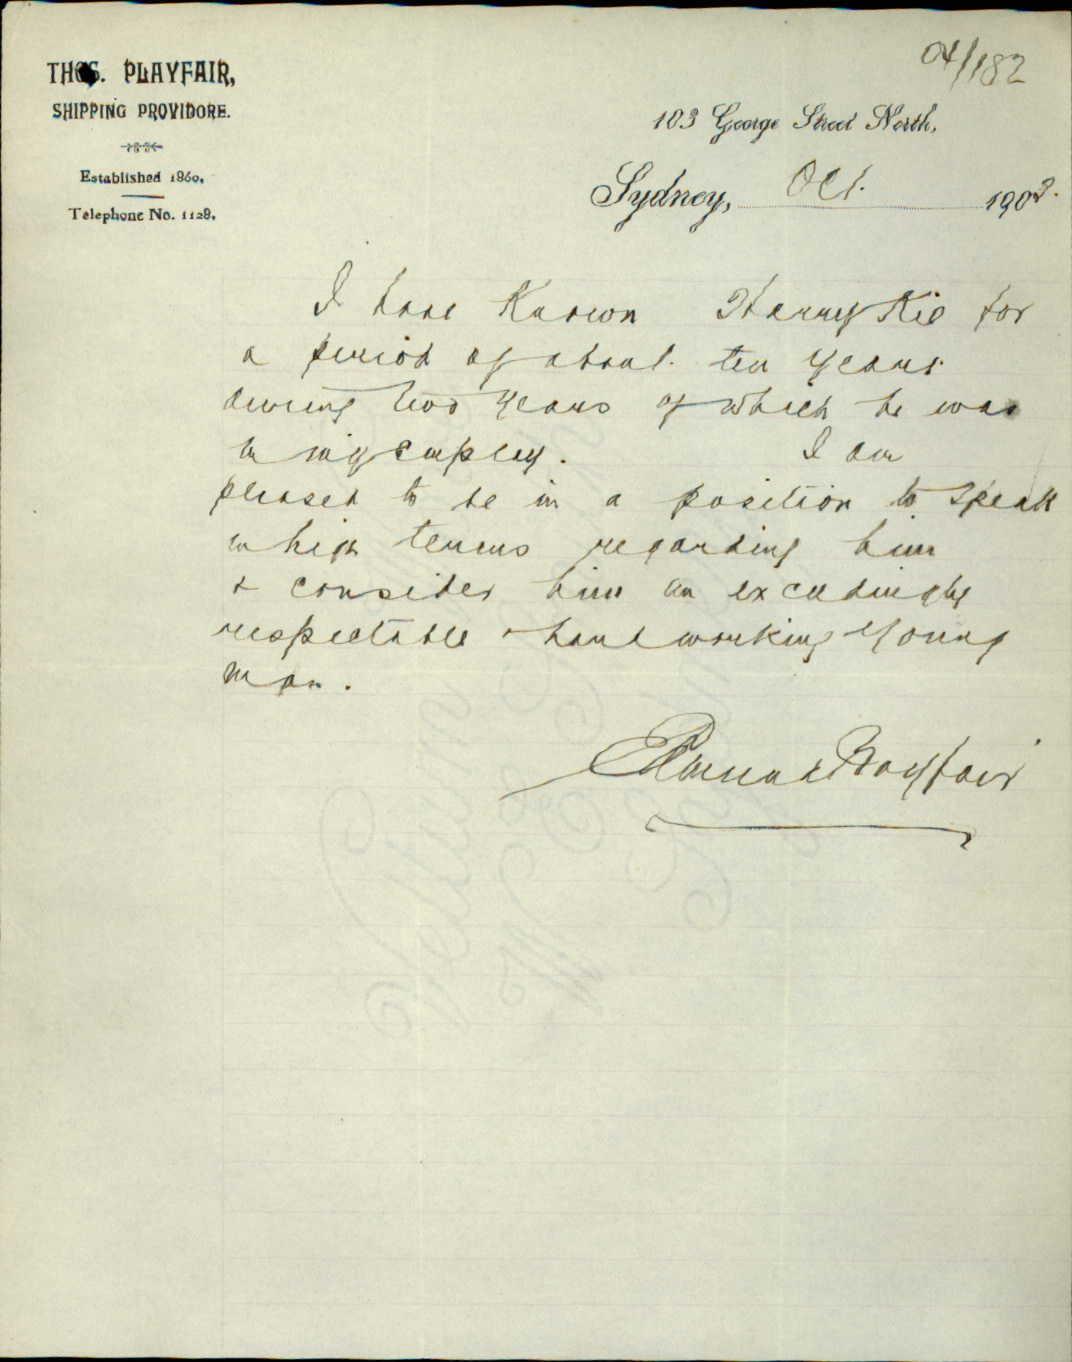 04/182
THOS. PLAYFAIR,
SHIPPING PROVIDORE.
Established 1860.
Telephone No. 1128.
103 George Street North,
Sydney, Oct. 1903.
I have Known Harry Kee for
a period of about ten years
during two years of which he was
in my employ. I am
pleased to be in a position to speak
in high terms regarding him
& consider him an exceedingly
respectable hard working young
man.
Edmund Playfair